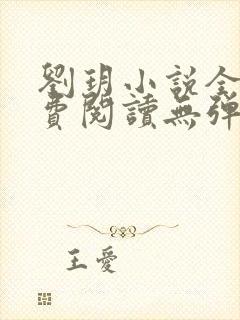 劉玥小説全
費閱讀無彈
王愛